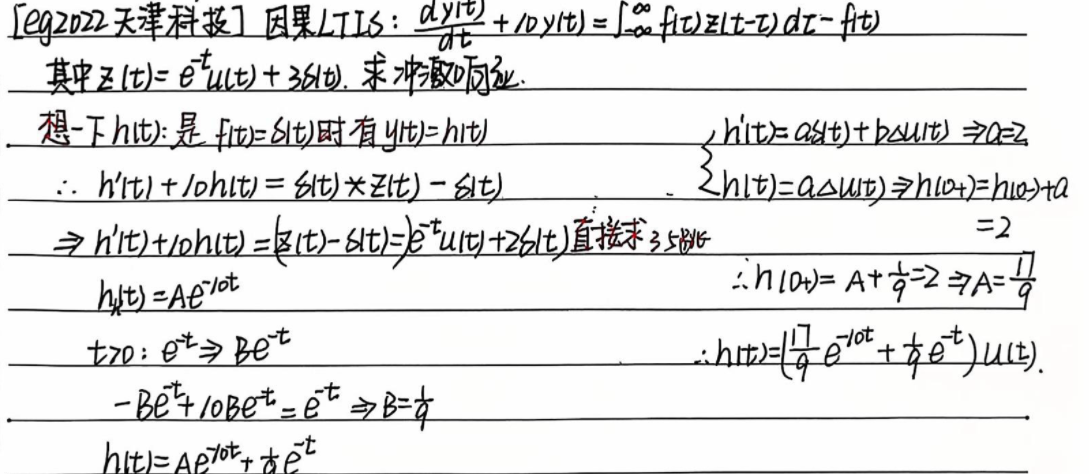 [eg2022天津科技] 因果LTIS: dy(t)/dt + 10y(t) = ∫_{-∞}^{∞} f(τ)z(t-τ)dτ - f(t)
其中z(t)=e^{-t}u(t)+3δ(t). 求冲激响应.
想一下h(t): 是f(t)=δ(t)时有y(t)=h(t)
∴ h'(t)+10h(t)=δ(t)*z(t)-δ(t)
⇒ h'(t)+10h(t)=(z(t)-δ(t)=)e^{-t}u(t)+2δ(t) 直接求
h(t)=Ae^{-10t}
t>0: e^{-t} ⇒ Be^{-t}
-Be^{-t}+10Be^{-t}=e^{-t} ⇒ B=1/9
h(t)=Ae^{-10t}+1/9 e^{-t}
{ h'(t)=aδ(t)+bΔu(t) ⇒ a=2
h(t)=aΔu(t) ⇒ h(0+)=h(0-)+a
=2
∴ h(0+)=A+1/9=2 ⇒ A=17/9
∴ h(t)=(17/9 e^{-10t}+1/9 e^{-t})u(t).